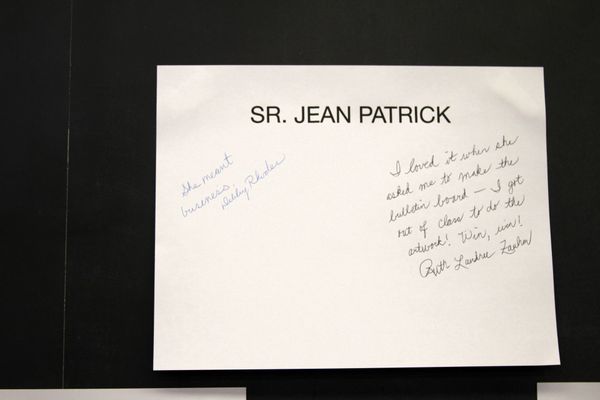 SR. JEAN PATRICK
She meant
business.
Debby Rhodes
I loved it when she
asked me to make the
bulletin board — I got
out of class to do the
artwork! Win, win!
Ruth Landree